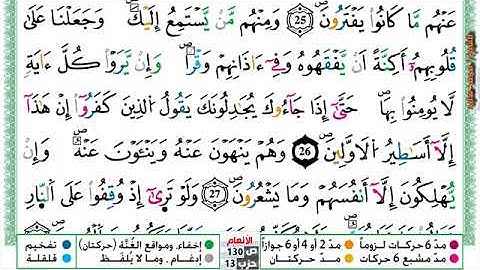 عَنْهُم مَّا كَانُواْ يَفْتَرُونَۖ 25 وَمِنْهُم مَّنْ يَّسْتَمِعُ إِلَيْكَۖ وَجَعَلْنَا عَلَىٰ
قُلُوبِهِمُۥٓ أَكِنَّةً أَنْ يَّفْقَهُوهُ وَفِےٓ ءَاذَانِهِمْ وَقْراٗۖ وَإِنْ يَّرَوْاْ كُلَّ ءَايَةٖ
لَّا يُومِنُواْ بِهَاۖ حَتَّىٰٓ إِذَا جَآءُوكَ يُجَٰدِلُونَكَ يَقُولُ اُ۬لذِينَ كَفَرُوٓاْ إِنْ هَٰذَآ
إِلَّآ أَسَٰطِيرُ اُ۬لَاوَّلِينَۖ 26 وَهُمْ يَنْهَوْنَ عَنْهُ وَيَنْـَٔوْنَ عَنْهُۖ وَإِنْ
يُّهْلِكُونَ إِلَّآ أَنفُسَهُمْ وَمَا يَشْعُرُونَۖ 27 وَلَوْ تَر۪ىٰٓ إِذْ وُقِفُواْ عَلَى اَ۬لنّ۪ارِ
مدّ 6 حركات لزوماً مدّ 2 أو 4 أو 6 جوازاً الأنعام ص 130 حزب 13 إخفاء، ومواقع الغُنَّة (حركتان) تفخيم
مدّ مشبع 6 حركات مدّ حركتان إدغام، وما لا يُلفَظ قلقلة